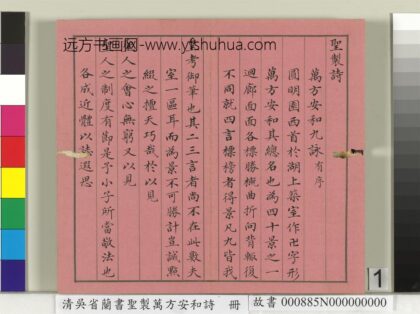 远方书画网-www.yishuhua.com
聖製詩
萬方安和九詠有序
圓明園西首於湖上築室作卍字形
萬方安和其總名也為四十景之一
迴廊面面各標勝概曲折向背輒復
不同就四言標楣者得景凡九皆我
皇考御筆也其二三言者尚不在此數夫
室一區耳而為景不可勝計豈誠點
綴之檀天巧哉於以見
聖人之會心無窮又以見
聖人之制度有即是乎小子所當敬法也
各成近體以誌遐思
1
清吳省蘭書聖製萬方安和詩 冊
故書 000885N000000000